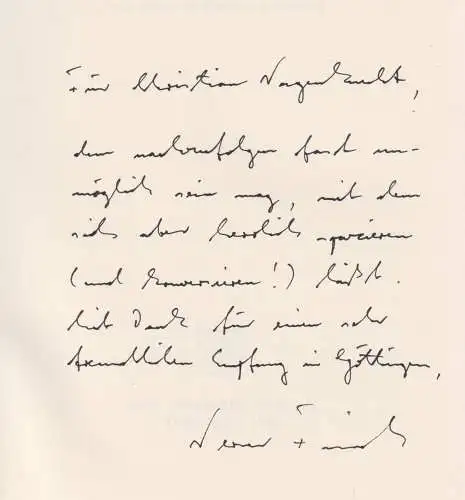 Für Christian Wagenknecht,
dem nachzufolgen fast un-
möglich sein mag, mit dem
sich aber herrlich spazieren
(und konversieren!) läßt.
Mit Dank für einen sehr
freundlichen Empfang in Göttingen,
Werner